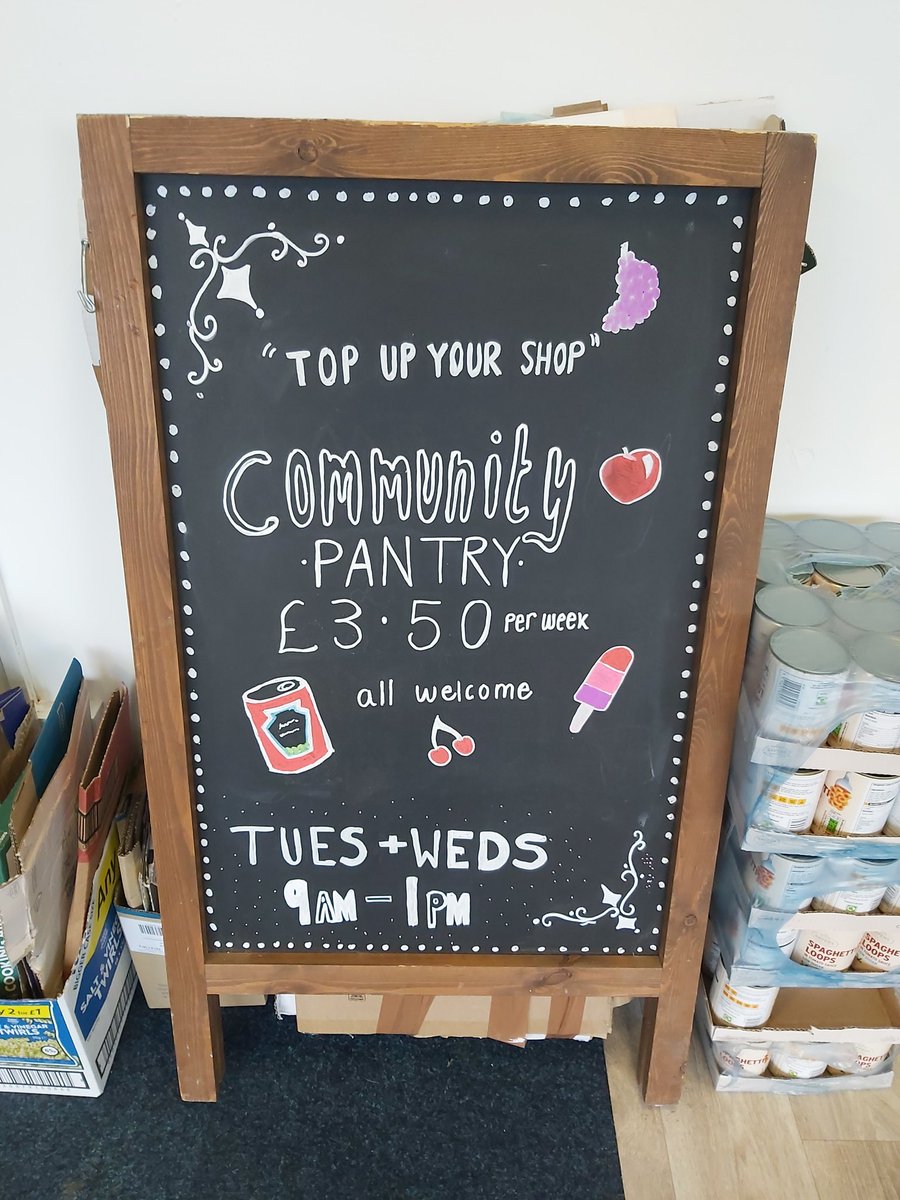 "TOP UP YOUR SHOP"
Community
·PANTRY·
£3·50 per week
all welcome
TUES + WEDS
9AM - 1PM
SPAGHETTI LOOPS
SPAGHETTI
LOOPS
SALT &
TWIRLS
& VINEGAR
TWIRLS